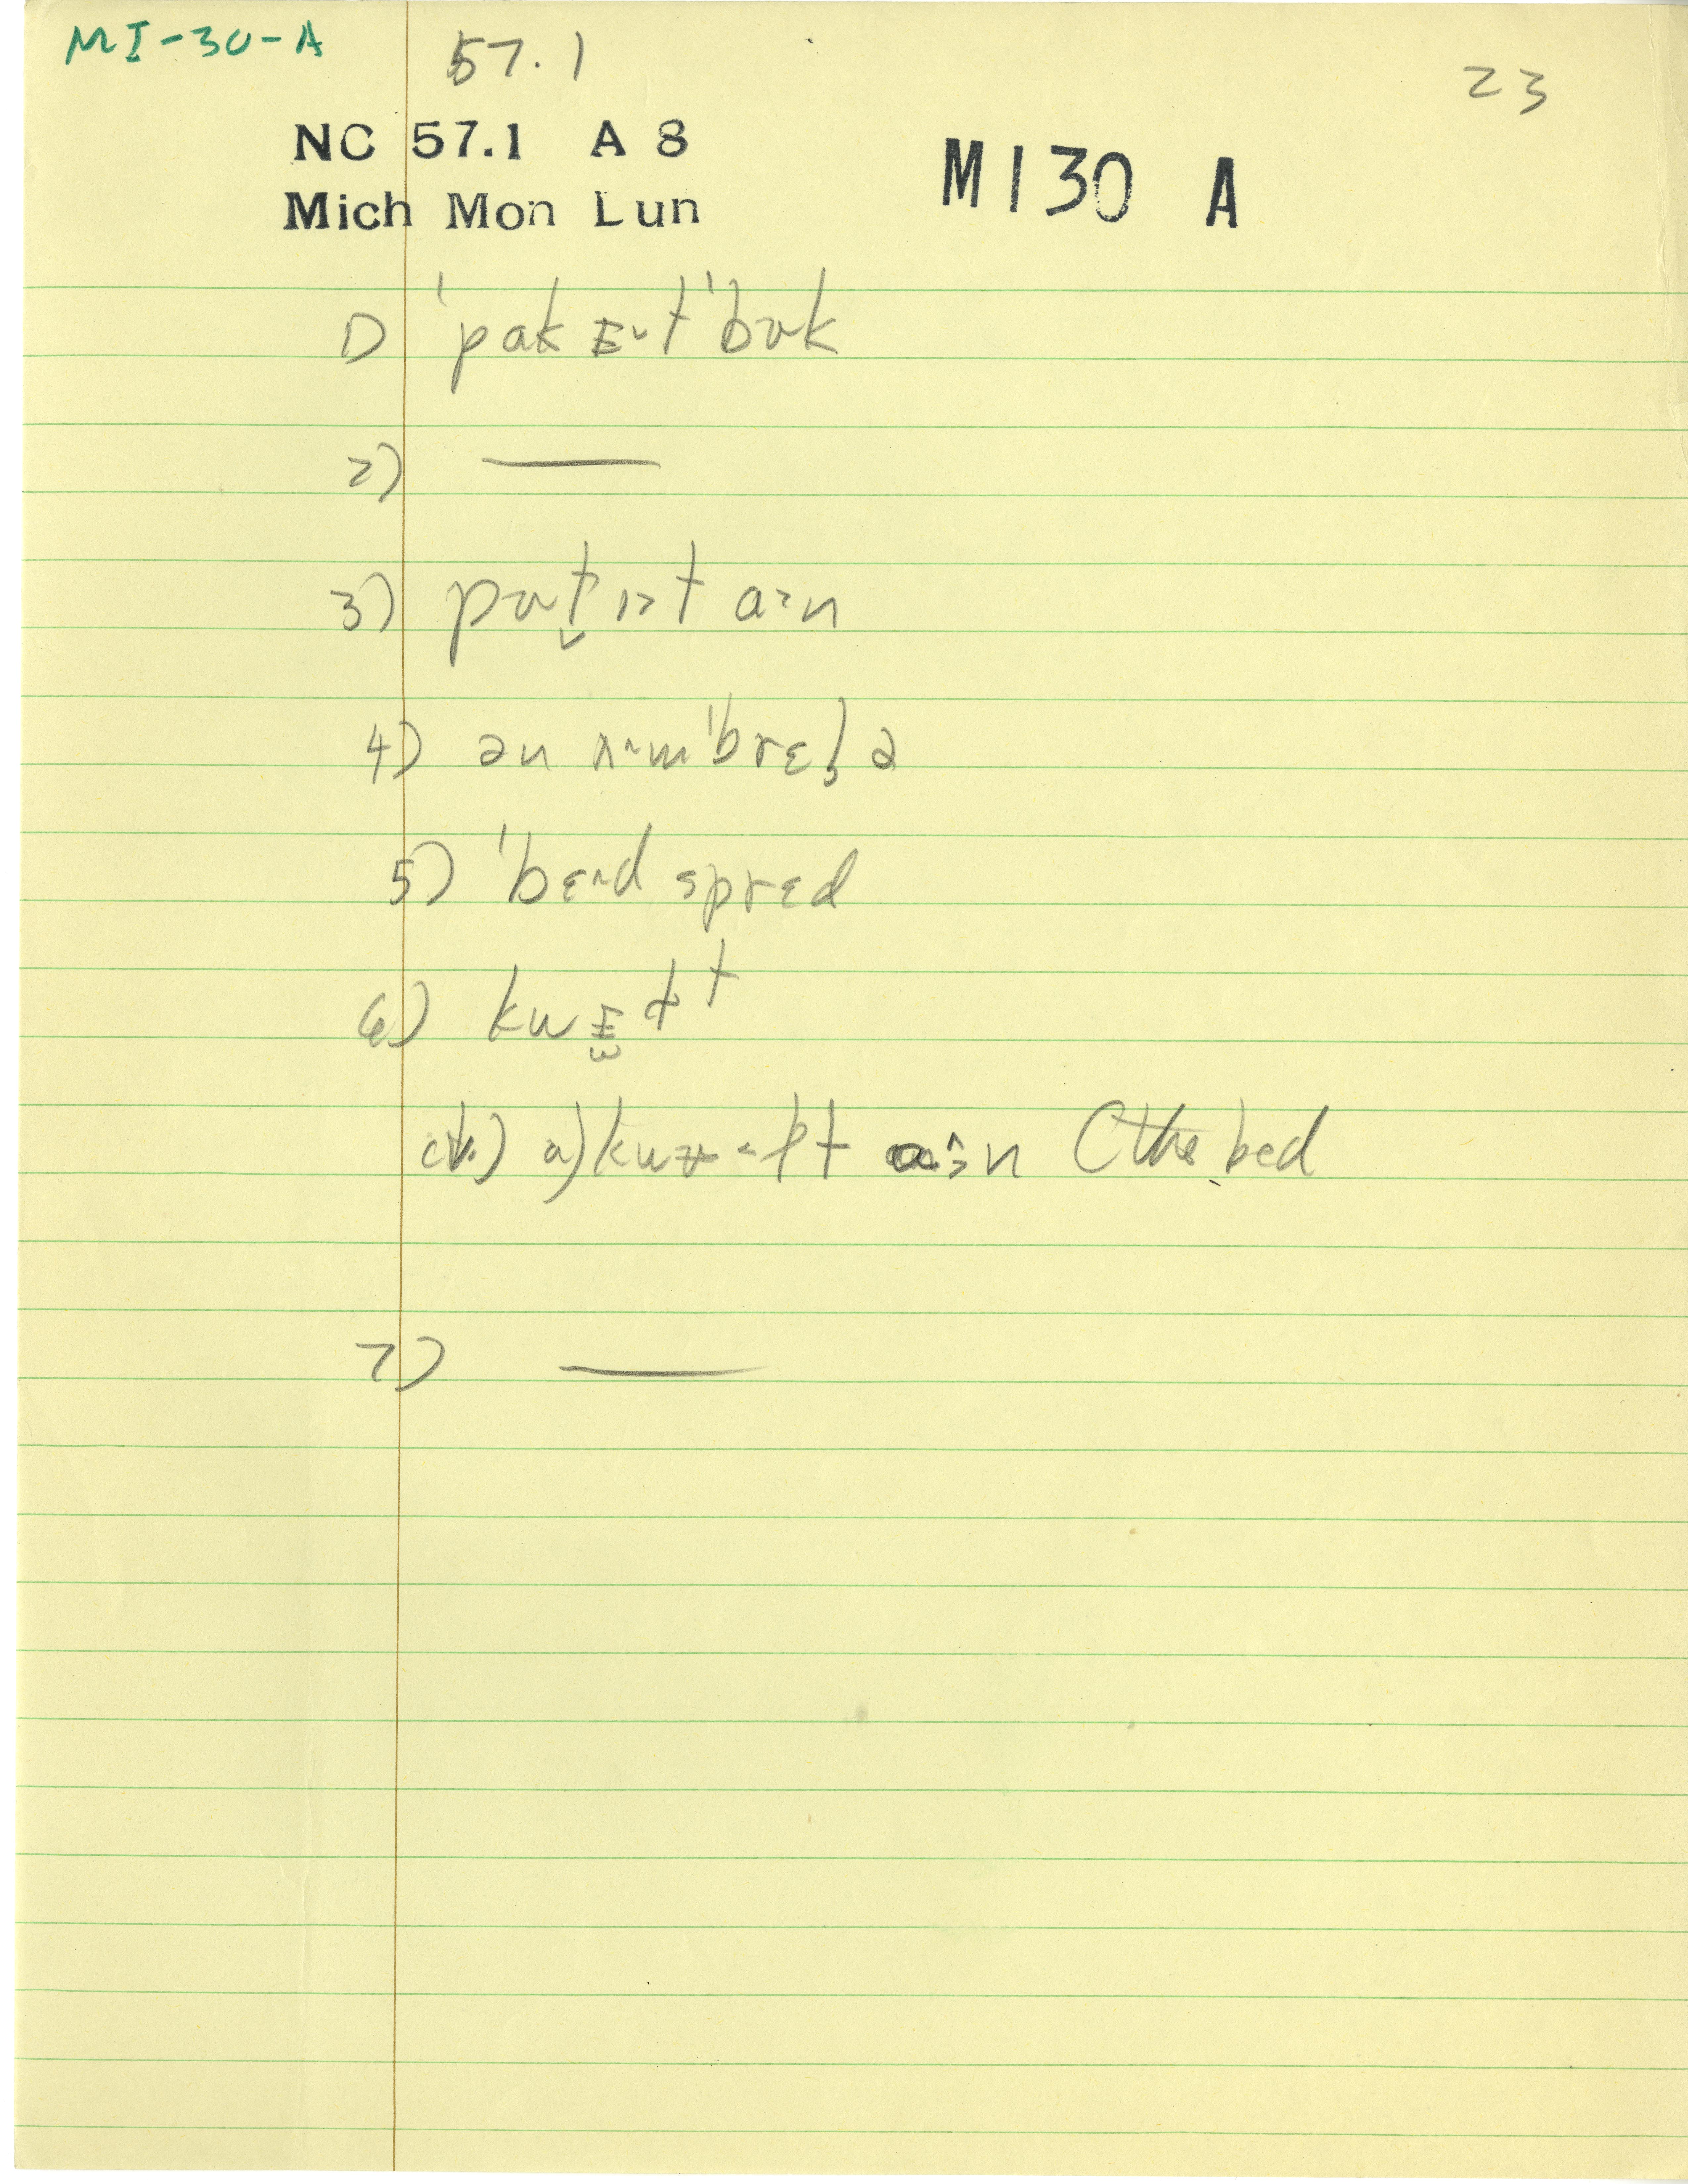 MI-30-A 57.1 23
NC 57.1 A 8
Mich Mon Lun
MI30 A
1) 'pak ᴇ˅t 'bʊk
2) ——
3) pʊt̬ ɪ>t a>n
4) ən ʌ˄m'brɛl̡ə
5) 'bɛ˄d sprɛd
6) kw t
a) kw a n (the bed
7) ——